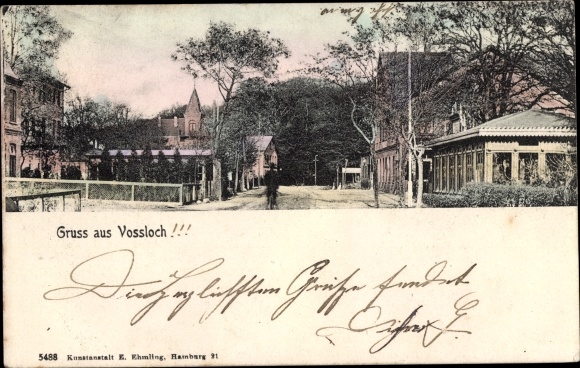 Gruss aus Vossloch!!!
Die herzlichsten Grüße sendet
5488 Kunstanstalt E. Ehmling, Hamburg 21